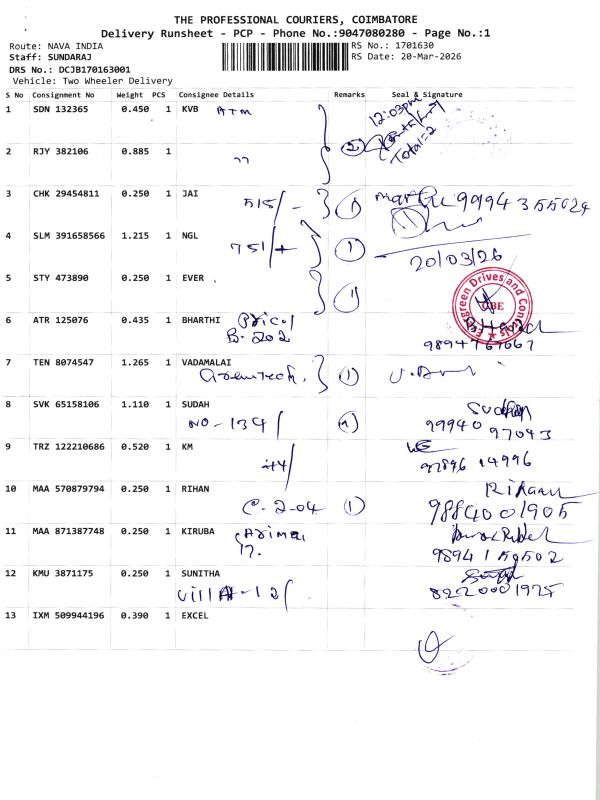 THE PROFESSIONAL COURIERS, COIMBATORE
Delivery Runsheet - PCP - Phone No.:9047080280 - Page No.:1
Route: NAVA INDIA
RS No.: 1701630
Staff: SUNDARAJ
RS Date: 20-Mar-2026
DRS No.: DCJB170163001
Vehicle: Two Wheeler Delivery
S No Consignment No Weight PCS Consignee Details Remarks Seal & Signature
1 SDN 132365 0.450 1 KVB ATM 12:03pm
2 RJY 382106 0.885 1 " 2 Total=2
3 CHK 29454811 0.250 1 JAI
515/- 1 9994355624
4 SLM 391658566 1.215 1 NGL
751/ 1
20/03/26
5 STY 473890 0.250 1 EVER
1 Evergreen Drives and Controls CBE
6 ATR 125076 0.435 1 BHARTHI Pricol
B-202
9894767067
7 TEN 8074547 1.265 1 VADAMALAI
Greentech. 1
8 SVK 65158106 1.110 1 SUDAH
NO-134/ 99940 97043
9 TRZ 122210686 0.520 1 KM
97896 14996
10 MAA 570879794 0.250 1 RIHAN
C-2-04 1 9884001905
11 MAA 871387748 0.250 1 KIRUBA
17. 9894150502
12 KMU 3871175 0.250 1 SUNITHA
Villa-12/ 8220001975
13 IXM 509944196 0.390 1 EXCEL